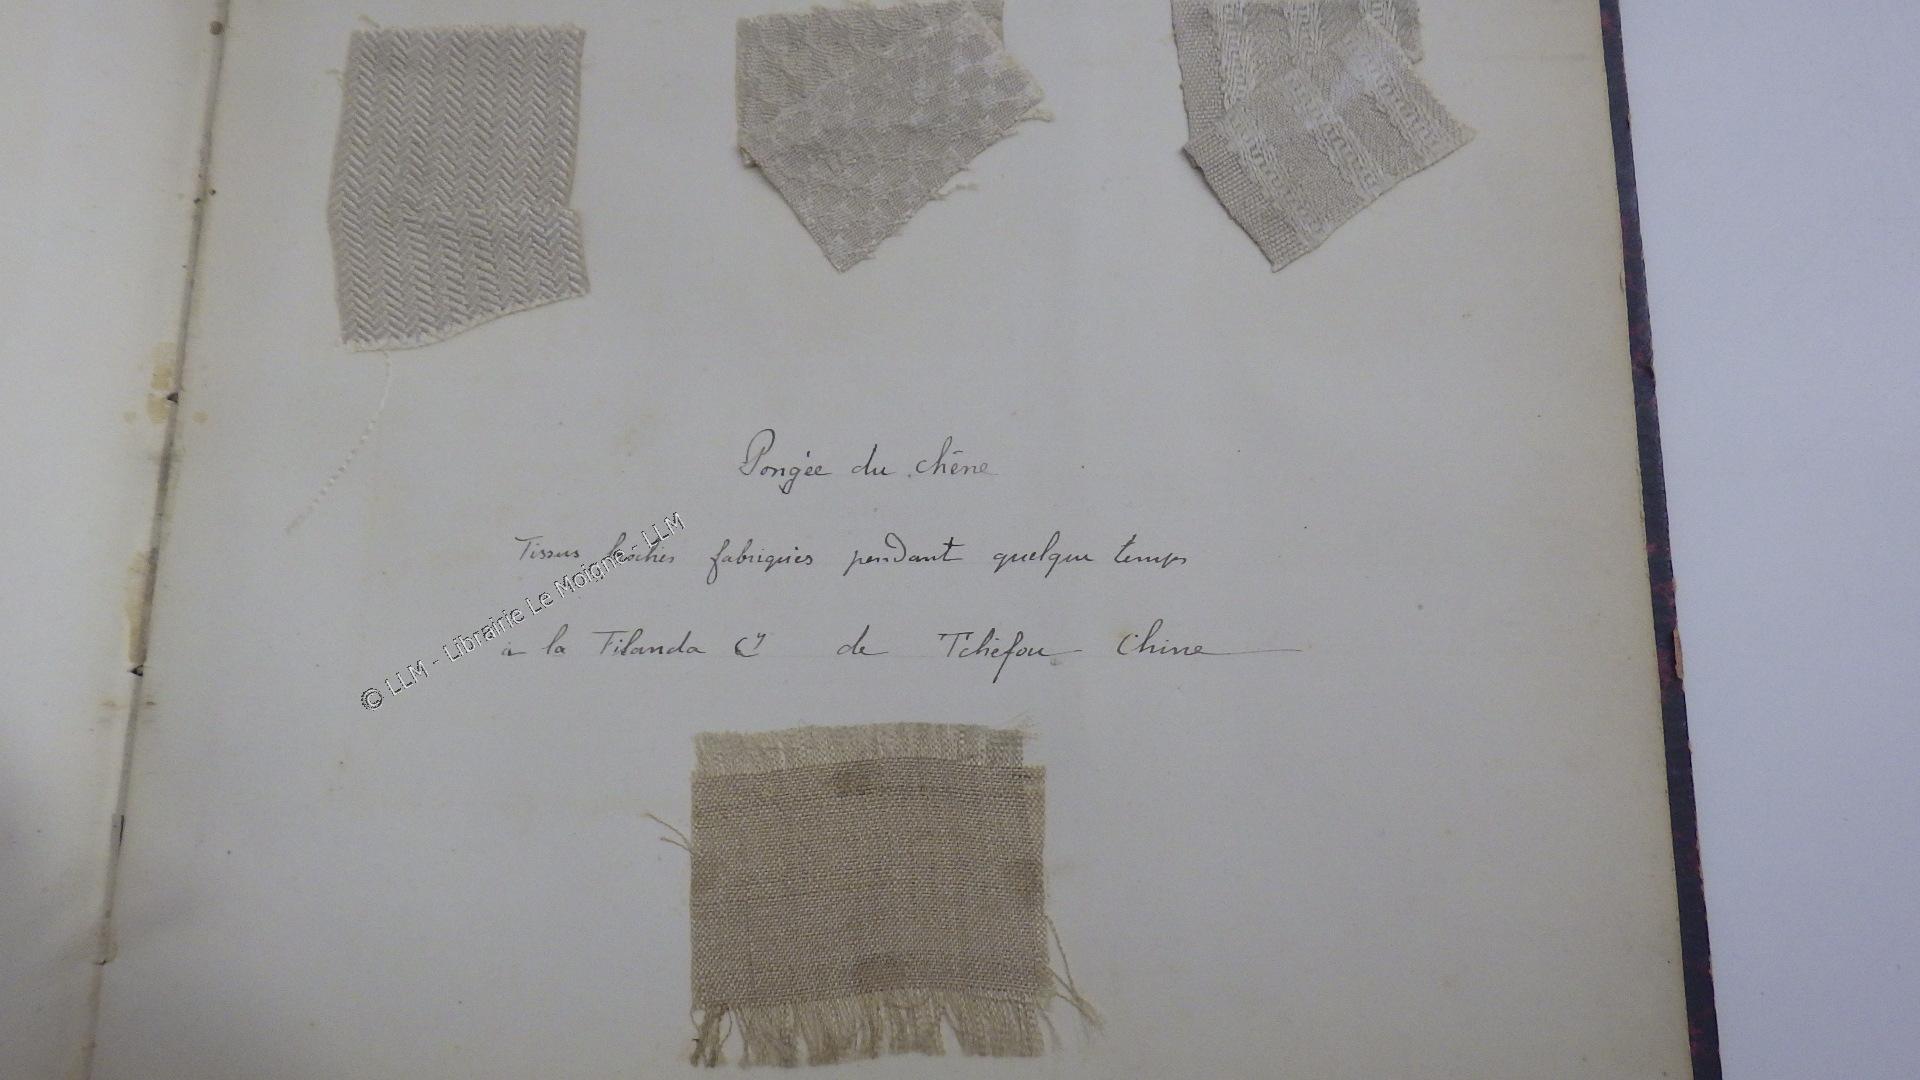 Pongée du chêne
Tissus brochés fabriqués pendant quelque temps
à la Filanda Cy de Tchéfou Chine
© LLM - Librairie Le Moigne - LLM